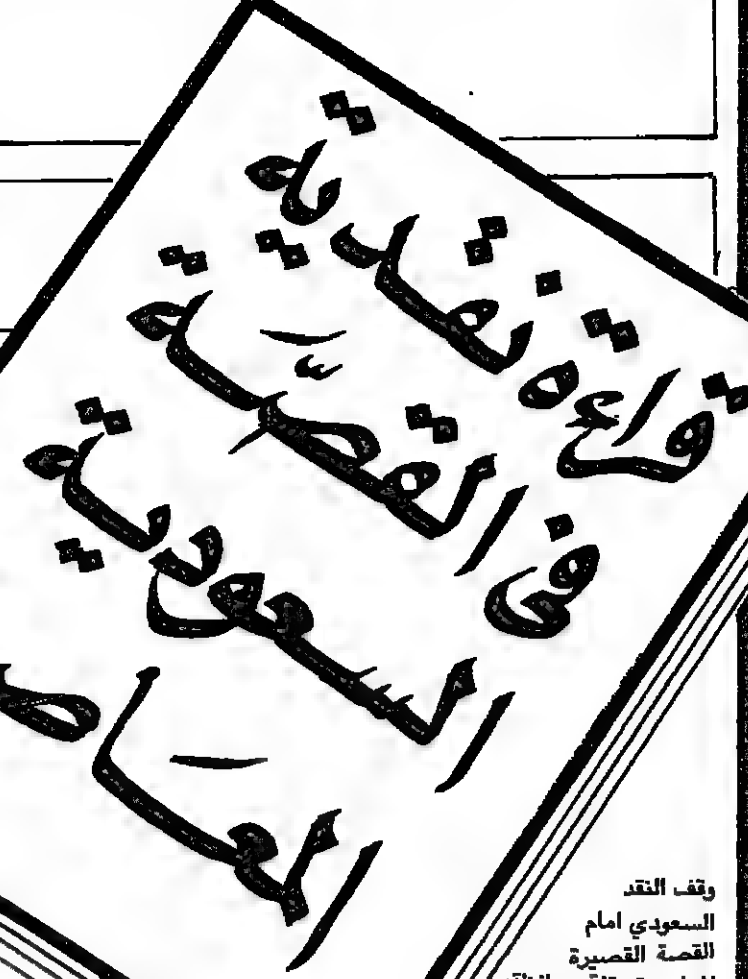 قراءة نقدية
في القصّة
السعودية
وقف النقد
السعودي امام
القصة القصيرة